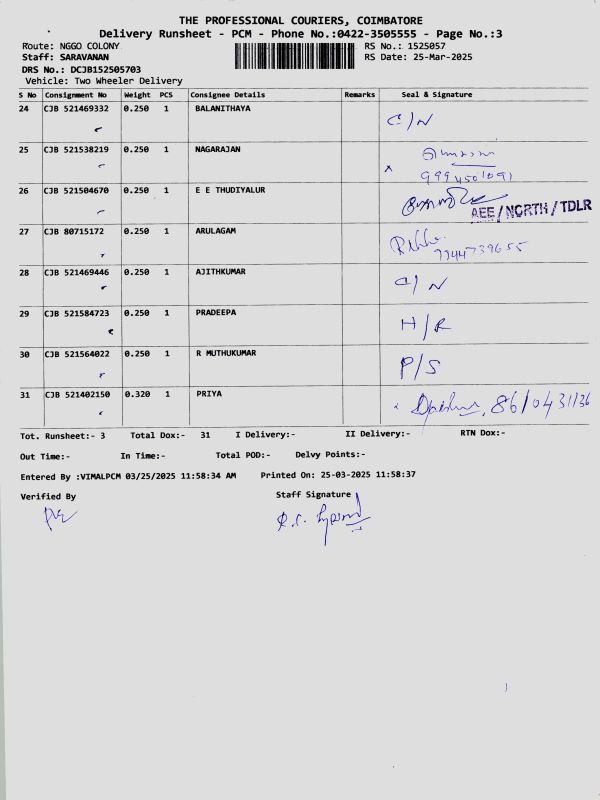 THE PROFESSIONAL COURIERS, COIMBATORE
Delivery Runsheet - PCM - Phone No.:0422-3505555 - Page No.:3
Route: NGGO COLONY RS No.: 1525057
Staff: SARAVANAN RS Date: 25-Mar-2025
DRS No.: DCJB152505703
Vehicle: Two Wheeler Delivery
S No Consignment No Weight PCS Consignee Details Remarks Seal & Signature
24 CJB 521469332 0.250 1 BALANITHAYA C/N
25 CJB 521538219 0.250 1 NAGARAJAN
x 9994501091
26 CJB 521504670 0.250 1 E E THUDIYALUR
AEE/NORTH/TDLR
27 CJB 80715172 0.250 1 ARULAGAM
7944739655
28 CJB 521469446 0.250 1 AJITHKUMAR C/N
29 CJB 521584723 0.250 1 PRADEEPA H/R
30 CJB 521564022 0.250 1 R MUTHUKUMAR P/S
31 CJB 521402150 0.320 1 PRIYA
Tot. Runsheet:- 3 Total Dox:- 31 I Delivery:- II Delivery:- RTN Dox:-
Out Time:- In Time:- Total POD:- Delvy Points:-
Entered By :VIMALPCM 03/25/2025 11:58:34 AM Printed On: 25-03-2025 11:58:37
Verified By Staff Signature